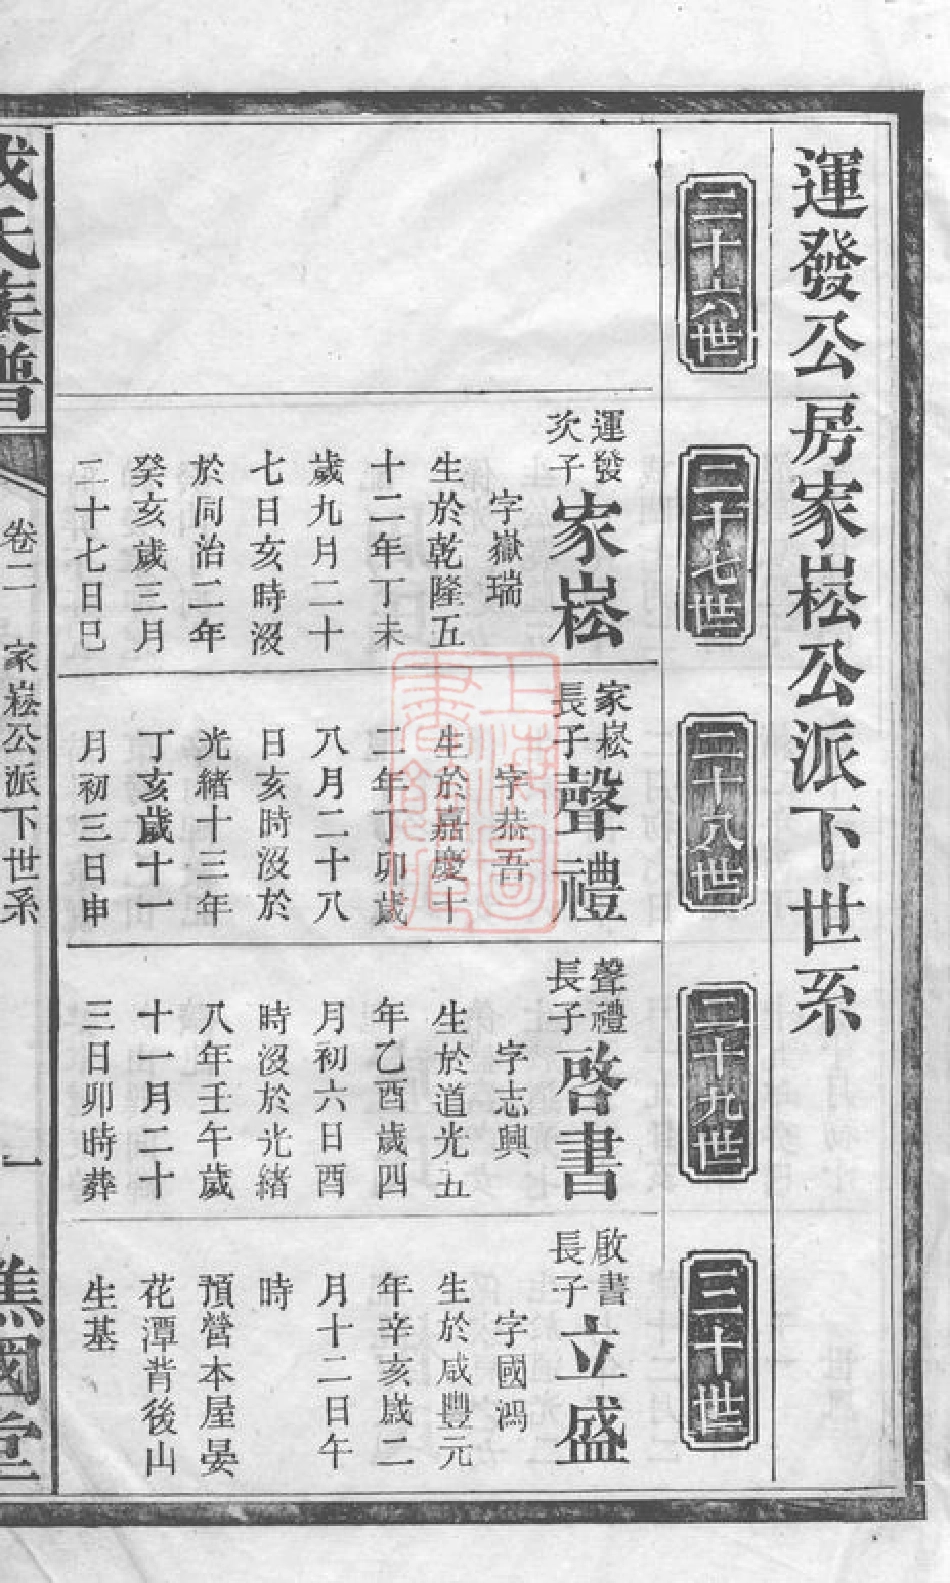 運發公房家崧公派下世系
二十六世
二十七世
二十八世
二十九世
三十世
運發
次子
家崧
字嶽瑞
生於乾隆五
十二年丁未
歲九月二十
七日亥時沒
於同治二年
癸亥歲三月
二十七日巳
家崧
長子
聲禮
字恭吾
生於嘉慶十
二年丁卯歲
八月二十八
日亥時沒於
光緒十三年
丁亥歲十一
月初三日申
聲禮
長子
啓書
字志興
生於道光五
年乙酉歲四
月初六日酉
時沒於光緒
八年壬午歲
十一月二十
三日卯時葬
啟書
長子
立盛
字國鴻
生於咸豐元
年辛亥歲二
月十二日午
時
預營本屋晏
花潭背後山
生基
氏族譜
卷二
家崧公派下世系
一
譙國堂
上海圖書館藏